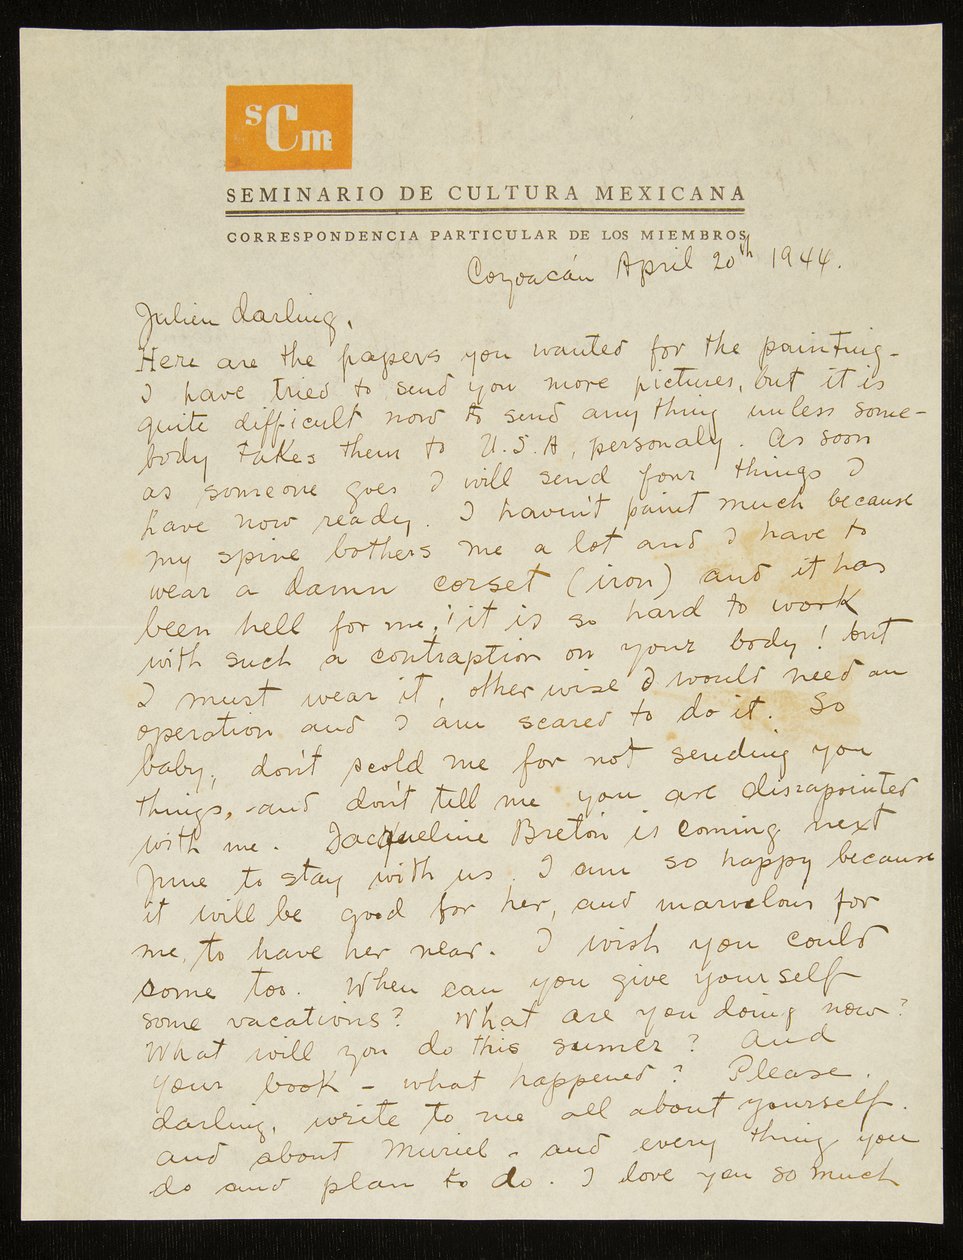 sCm
SEMINARIO DE CULTURA MEXICANA
CORRESPONDENCIA PARTICULAR DE LOS MIEMBROS
Coyoacán April 20th 1944.
Julien darling,
Here are the papers you wanted for the painting-
I have tried to send you more pictures, but it is
quite difficult now to send any thing unless some-
body takes them to U.S.A, personaly. As soon
as someone goes I will send four things I
have now ready. I haven't paint much because
my spine bothers me a lot and I have to
wear a damn corset (iron) and it has
been hell for me! it is so hard to work
with such a contraption on your body! but
I must wear it, other wise I would need an
operation and I am scared to do it. So
baby, don't scold me for not sending you
things, and don't tell me you are dissapointed
with me. Jacqueline Breton is coming next
June to stay with us I am so happy because
it will be good for her, and marvelous for
me, to have her near. I wish you could
come too. When can you give yourself
some vacations? What are you doing now?
What will you do this sumer? And
your book - what happened? Please.
darling, write to me all about yourself.
and about Muriel - and every thing you
do and plan to do. I love you so much